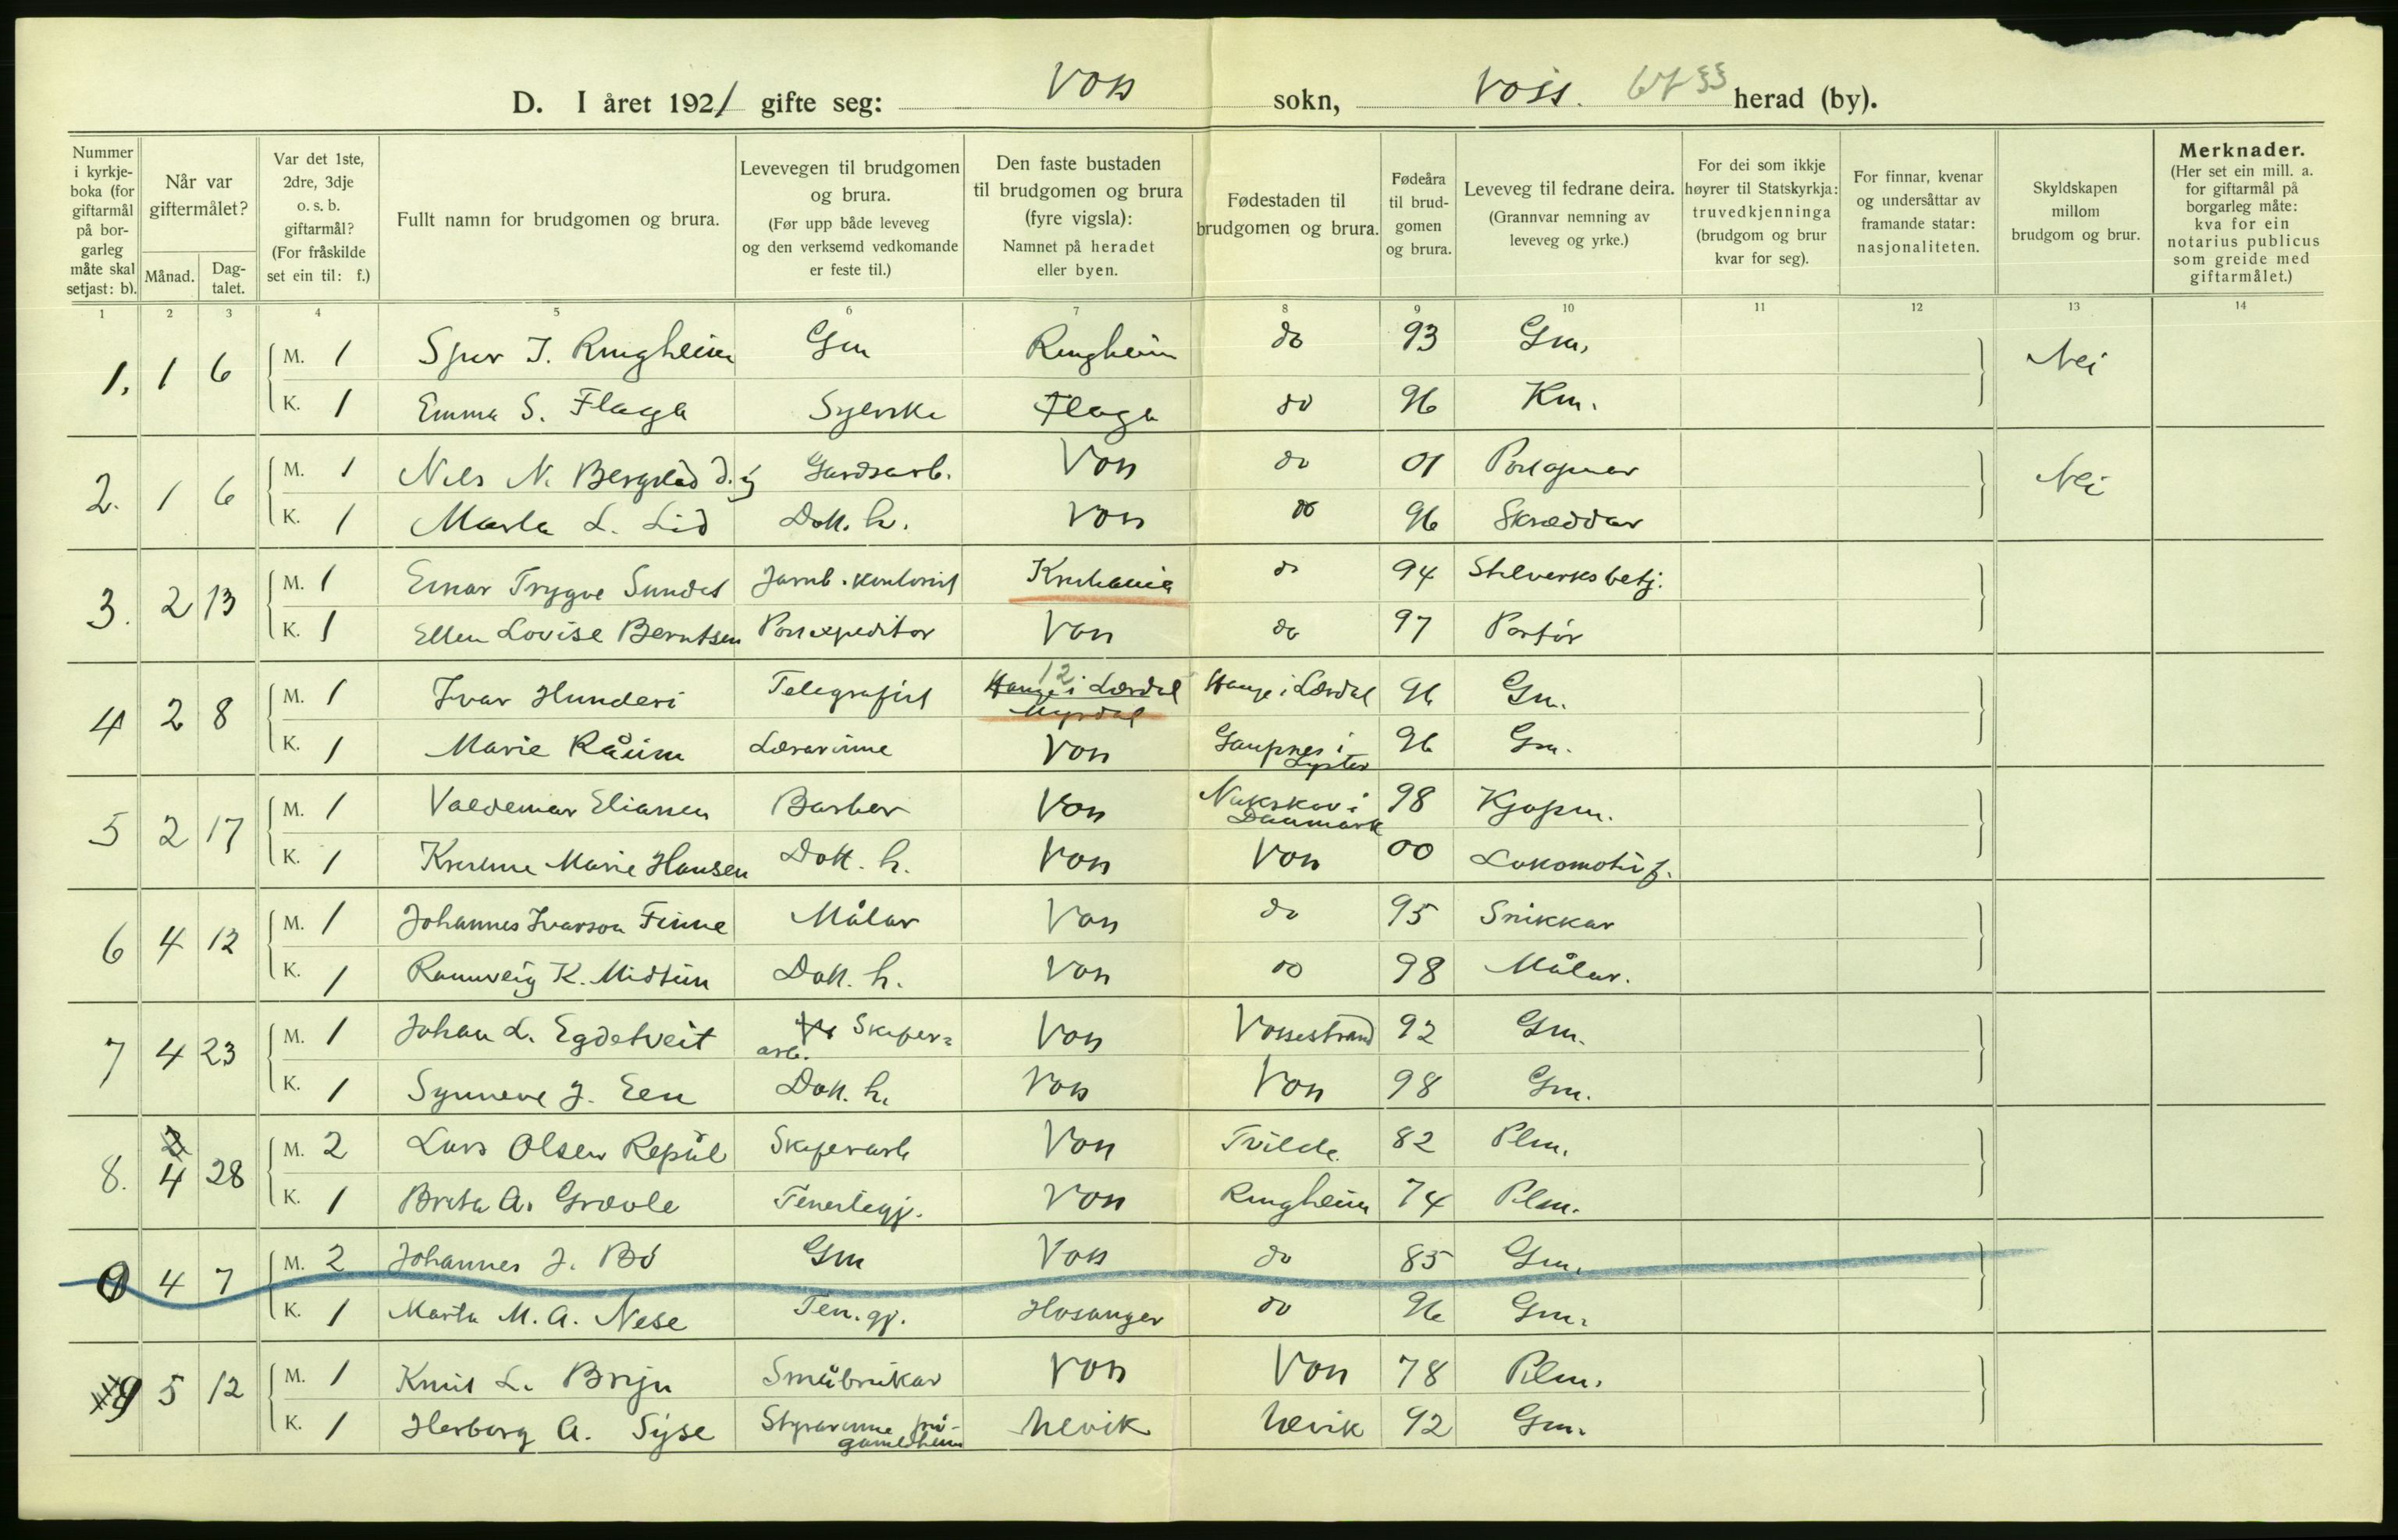 D. I året 1921 gifte seg: Voss sokn, Voss. herad (by).
Nummer i kyrkje-boka (for giftarmål på bor-garleg måte skal setjast: b).
Når var giftermålet?
Månad.
Dag-talet.
Var det 1ste, 2dre, 3dje o. s. b. giftarmål? (For fråskilde set ein til: f.)
Fullt namn for brudgomen og brura.
Levevegen til brudgomen og brura. (Før upp både leveveg og den verksemd vedkomande er feste til.)
Den faste bustaden til brudgomen og brura (fyre vigsla): Namnet på heradet eller byen.
Fødestaden til brudgomen og brura.
Fødeåra til brud-gomen og brura.
Leveveg til fedrane deira. (Grannvar nemning av leveveg og yrke.)
For dei som ikkje høyrer til Statskyrkja: truvedkjenninga (brudgom og brur kvar for seg).
For finnar, kvenar og undersåttar av framande statar: nasjonaliteten.
Skyldskapen millom brudgom og brur.
Merknader. (Her set ein mill. a. for giftarmål på borgarleg måte: kva for ein notarius publicus som greide med giftarmålet.)
1 2 3 4 5 6 7 8 9 10 11 12 13 14
1. 1 6 M. 1 Sjur J. Ringheim Gm Ringheim do 93 Gm. Nei
K. 1 Emma S. Flaga Syerske Flaga do 96 Km.
2. 1 6 M. 1 Nils N. Bergslid d.y Gardsarb. Voss do 01 Nei
K. 1 Marta L. Lid Dott. h. Voss do 96 Skræddar
3. 2 13 M. 1 Einar Trygve Sundet Jarnb. kontorist Kristiania do 94
K. 1 Ellen Lovise Berntsen Postexpeditor Voss do 97 Portør
4 2 8 M. 1 Ivar Hunderi Telegrafist 12 Hauge i Lærdal Hauge i Lærdal 96 Gm.
Myrdal
K. 1 Marie Råum Lærarinne Voss Gaupnes i Lyster 96 Gm.
5 2 17 M. 1 Valdemar Eliassen Barber Voss Nakskov i Danmark 98 Kjøpm.
K. 1 Kristine Marie Hansen Dott. h. Voss Voss 00 Lokomotivf.
6 4 12 M. 1 Johannes Ivarson Finne Målar Voss do 95 Snikkar
K. 1 Rannveig K. Midtun Dott. h. Voss do 98 Målar.
7 4 23 M. 1 Johan L. Egdetveit Skiferarb. Voss Vossestrand 92 Gm.
K. 1 Synneve J. Een Dott. h. Voss Voss 98 Gm.
8. 4 28 M. 2 Lars Olsen Repål Skiferarb Voss Tvilde 82 Plm.
K. 1 Brita A. Grovle Tenestegj. Voss Ringheim 74 Plm.
9 4 7 M. 2 Johannes J. Bø Gm Voss do 85 Gm.
K. 1 Marta M. A. Nese Ten. gj. Hosanger do 96 Gm.
9 5 12 M. 1 Knut L. Bryn Småbrukar Voss Voss 78 Plm.
K. 1 Herborg A. Syse Styrarinne på gamleheim Ulvik Ulvik 92 Gm.